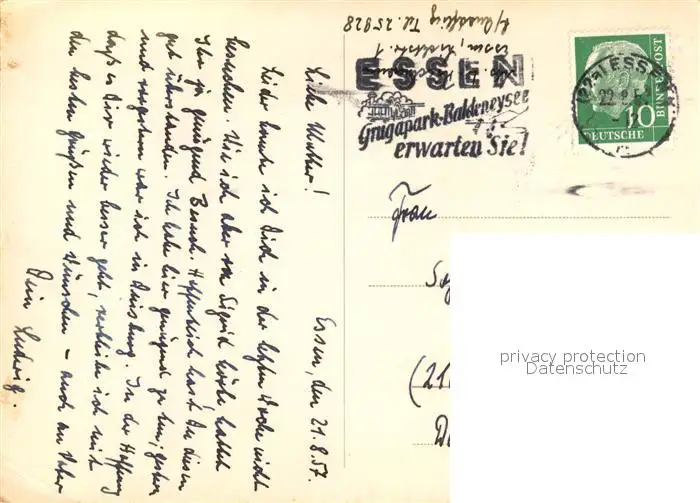 Essen, den 21.8.57.
Liebe Mutter!
Leider konnte ich Dich in der letzten Woche nicht
besuchen. Wie ich aber von Sigrid hörte hattest
Du ja genügend Besuch. Hoffentlich hast Du diesen
gut überstanden. Ich habe hier genügend zu tun; gestern
und vorgestern war ich in Duisburg. In der Hoffnung
daß es Dir wieder besser geht, verbleibe ich mit
den besten Grüßen und Wünschen – auch an Vater
Dein Ludwig.
Essen,
Tel. 25928
ESSEN
Grugapark-Baldeneysee
erwarten Sie!
(22a) ESSEN
22.8.5
10
DEUTSCHE
BUNDESPOST
Frau
(21
privacy protection
Datenschutz